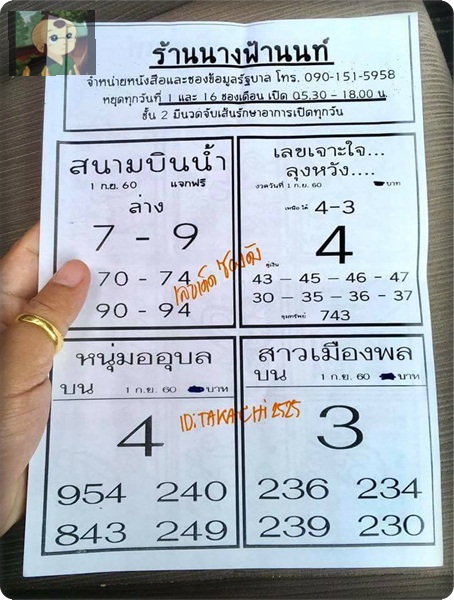 ร้านนางฟ้านนท์
จำหน่ายหนังสือและซองข้อมูลรัฐบาล โทร. 090-151-5958
หยุดทุกวันที่ 1 และ 16 ของเดือน เปิด 05.30 - 18.00 น.
ชั้น 2 มีนวดจับเส้นรักษาอาการเปิดทุกวัน
สนามบินน้ำ
1 ก.ย. 60 แจกฟรี
ล่าง
7 - 9
70 - 74
90 - 94
เลขเจาะใจ...
ลุงหวัง....
งวดวันที่ 1 ก.ย. 60 บาท
เหนือ ใต้ 4-3
4
คู่เงิน
43 - 45 - 46 - 47
30 - 35 - 36 - 37
ขุมทรัพย์ 743
เลขเด็ด ซองดัง
หนุ่มออุบล
บน 1 ก.ย. 60 บาท
4
954 240
843 249
สาวเมืองพล
บน 1 ก.ย. 60 บาท
3
236 234
239 230
ID:TAKAICHI2525